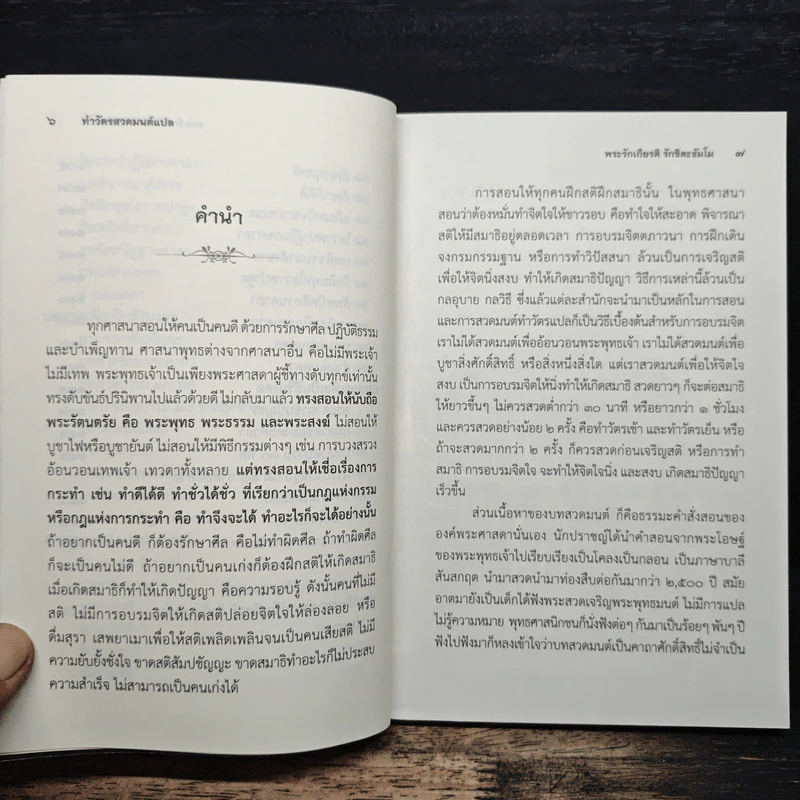 ๖ ทำวัตรสวดมนต์แปล
คำนำ
ทุกศาสนาสอนให้คนเป็นคนดี ด้วยการรักษาศีล ปฏิบัติธรรม
และบำเพ็ญทาน ศาสนาพุทธต่างจากศาสนาอื่น คือไม่มีพระเจ้า
ไม่มีเทพ พระพุทธเจ้าเป็นเพียงพระศาสดาผู้ชี้ทางดับทุกข์เท่านั้น
ทรงดับขันธ์ปรินิพานไปแล้วด้วยดี ไม่กลับมาแล้ว ทรงสอนให้นับถือ
พระรัตนตรัย คือ พระพุทธ พระธรรม และพระสงฆ์ ไม่สอนให้
บูชาไฟหรือบูชายันต์ ไม่สอนให้มีพิธีกรรมต่างๆ เช่น การบวงสรวง
อ้อนวอนเทพเจ้า เทวดาทั้งหลาย แต่ทรงสอนให้เชื่อเรื่องการ
กระทำ เช่น ทำดีได้ดี ทำชั่วได้ชั่ว ที่เรียกว่าเป็นกฎแห่งกรรม
หรือกฎแห่งการกระทำ คือ ทำจึงจะได้ ทำอะไรก็จะได้อย่างนั้น
ถ้าอยากเป็นคนดี ก็ต้องรักษาศีล คือไม่ทำผิดศีล ถ้าทำผิดศีล
ก็จะเป็นคนไม่ดี ถ้าอยากเป็นคนเก่งก็ต้องฝึกสติให้เกิดสมาธิ
เมื่อเกิดสมาธิก็ทำให้เกิดปัญญา คือความรอบรู้ ดังนั้นคนที่ไม่มี
สติ ไม่มีการอบรมจิตให้เกิดสติปล่อยจิตใจให้ล่องลอย หรือ
ดื่มสุรา เสพยาเมาเพื่อให้สติเพลิดเพลินจนเป็นคนเสียสติ ไม่มี
ความยับยั้งชั่งใจ ขาดสติสัมปชัญญะ ขาดสมาธิทำอะไรก็ไม่ประสบ
ความสำเร็จ ไม่สามารถเป็นคนเก่งได้
พระรักเกียรติ รักขิตะธัมโม ๗
การสอนให้ทุกคนฝึกสติฝึกสมาธินั้น ในพุทธศาสนา
สอนว่าต้องหมั่นทำจิตใจให้ขาวรอบ คือทำใจให้สะอาด พิจารณา
สติให้มีสมาธิอยู่ตลอดเวลา การอบรมจิตตภาวนา การฝึกเดิน
จงกรมกรรมฐาน หรือการทำวิปัสสนา ล้วนเป็นการเจริญสติ
เพื่อให้จิตนิ่งสงบ ทำให้เกิดสมาธิปัญญา วิธีการเหล่านี้ล้วนเป็น
กลอุบาย กลวิธี ซึ่งแล้วแต่ละสำนักจะนำมาเป็นหลักในการสอน
และการสวดมนต์ทำวัตรแปลก็เป็นวิธีเบื้องต้นสำหรับการอบรมจิต
เราไม่ได้สวดมนต์เพื่ออ้อนวอนพระพุทธเจ้า เราไม่ได้สวดมนต์เพื่อ
บูชาสิ่งศักดิ์สิทธิ์ หรือสิ่งหนึ่งสิ่งใด แต่เราสวดมนต์เพื่อให้จิตใจ
สงบ เป็นการอบรมจิตให้นิ่งทำให้เกิดสมาธิ สวดยาวๆ ก็จะต่อสมาธิ
ให้ยาวขึ้นๆ ไม่ควรสวดต่ำกว่า ๓๐ นาที หรือยาวกว่า ๑ ชั่วโมง
และควรสวดอย่างน้อย ๒ ครั้ง คือทำวัตรเช้า และทำวัตรเย็น หรือ
ถ้าจะสวดมากกว่า ๒ ครั้ง ก็ควรสวดก่อนเจริญสติ หรือการทำ
สมาธิ การอบรมจิตใจ จะทำให้จิตใจนิ่ง และสงบ เกิดสมาธิปัญญา
เร็วขึ้น
ส่วนเนื้อหาของบทสวดมนต์ ก็คือธรรมะคำสั่งสอนของ
องค์พระศาสดานั่นเอง นักปราชญ์ได้นำคำสอนจากพระโอษฐ์
ของพระพุทธเจ้าไปเรียบเรียงเป็นโคลงเป็นกลอน เป็นภาษาบาลี
สันสกฤต นำมาสวดนำมาท่องสืบต่อกันมากว่า ๒,๕๐๐ ปี สมัย
อาตมายังเป็นเด็กได้ฟังพระสวดเจริญพระพุทธมนต์ ไม่มีการแปล
ไม่รู้ความหมาย พุทธศาสนิกชนก็นั่งฟังต่อๆ กันมาเป็นร้อยๆ พันๆ ปี
ฟังไปฟังมาก็หลงเข้าใจว่าบทสวดมนต์เป็นคาถาศักดิ์สิ์ทธิ์ไม่จำเป็น